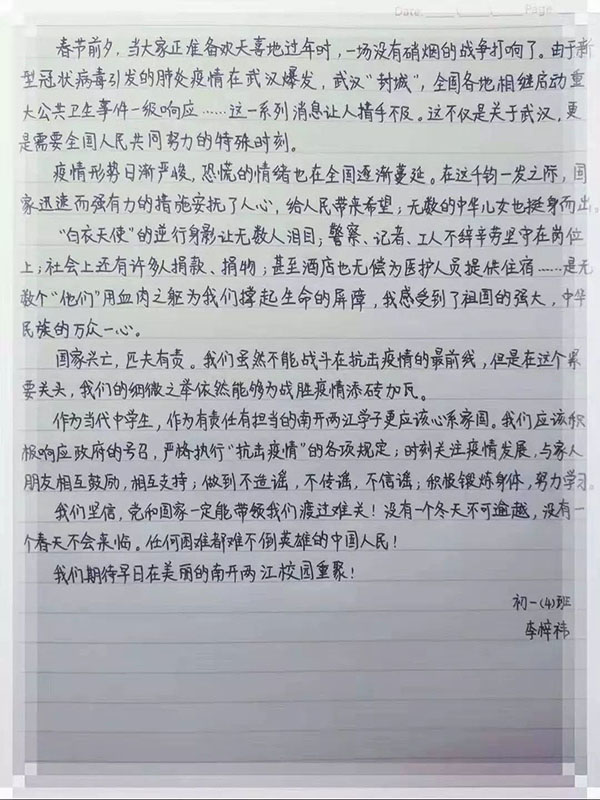 Date: Page
春节前夕，当大家正准备欢天喜地过年时，一场没有硝烟的战争打响了。由于新
型冠状病毒引发的肺炎疫情在武汉爆发，武汉"封城"，全国各地相继启动重
大公共卫生事件一级响应……这一系列消息让人措手不及。这不仅是关于武汉，更
是需要全国人民共同努力的特殊时刻。
疫情形势日渐严峻，恐慌的情绪也在全国逐渐蔓延。在这千钧一发之际，国
家迅速而强有力的措施安抚了人心，给人民带来希望；无数的中华儿女也挺身而出。
"白衣天使"的逆行身影让无数人泪目；警察、记者、工人不辞辛劳坚守在岗位
上；社会上还有许多人捐款、捐物；甚至酒店也无偿为医护人员提供住宿……是无
数个"他们"用血肉之躯为我们撑起生命的屏障，我感受到了祖国的强大，中华
民族的万众一心。
国家兴亡，匹夫有责。我们虽然不能战斗在抗击疫情的最前线，但是在这个紧
要关头，我们的细微之举依然能够为战胜疫情添砖加瓦。
作为当代中学生，作为有责任有担当的南开两江学子更应该心系家国。我们应该积
极响应政府的号召，严格执行"抗击疫情"的各项规定；时刻关注疫情发展，与家人
朋友相互鼓励，相互支持；做到不造谣，不传谣，不信谣；积极锻炼身体，努力学习。
我们坚信，党和国家一定能带领我们渡过难关！没有一个冬天不可逾越，没有一
个春天不会来临。任何困难都难不倒英雄的中国人民！
我们期待早日在美丽的南开两江校园重聚！
初一(4)班
李梓祎